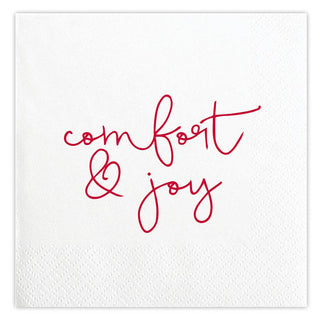 comfort
& joy